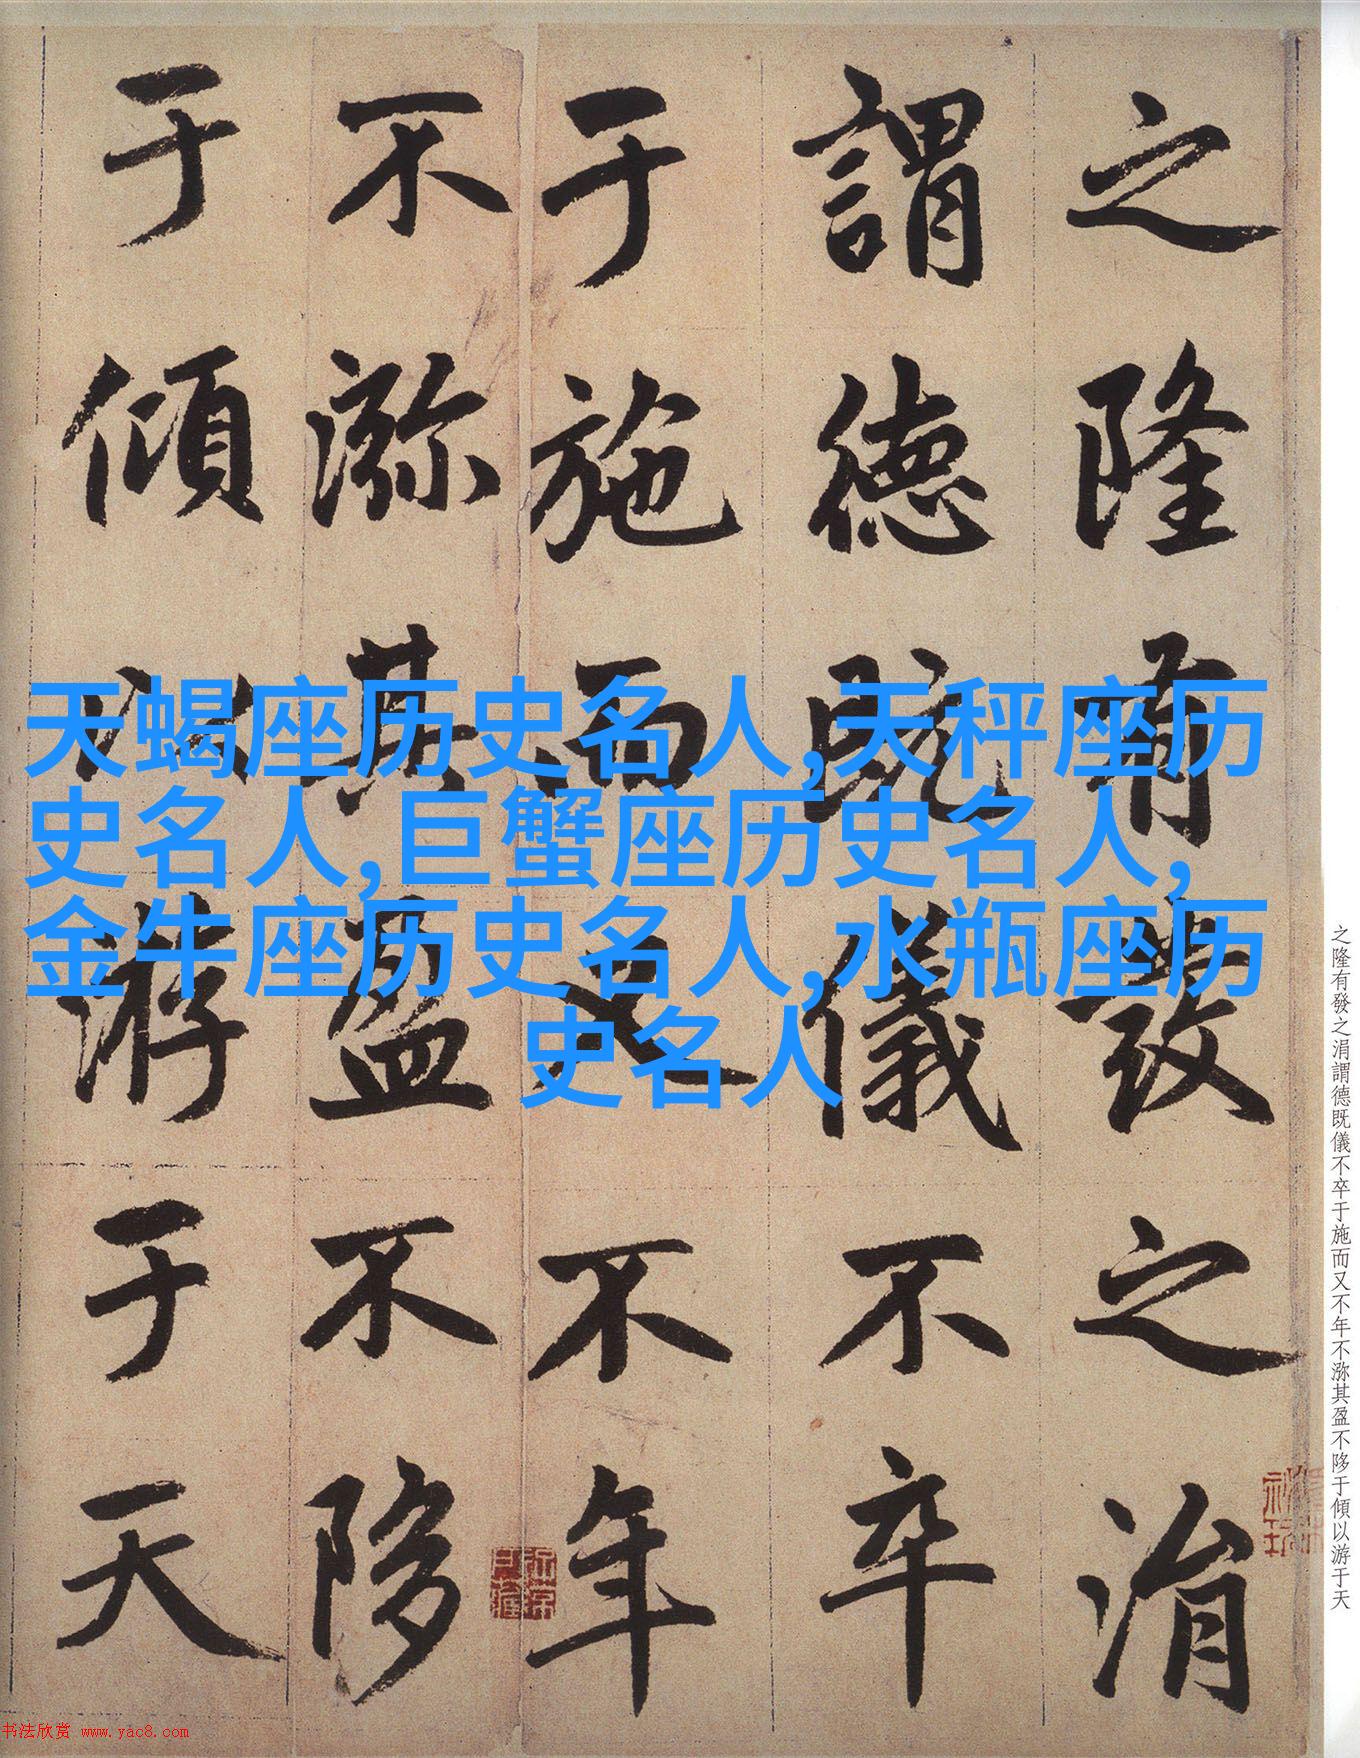 之隆有發之涓
謂德既儀不卒
于施而又不年
不㳽其盈不陊
于傾以游于天
天蝎座历史名人,天秤座历
史名人,巨蟹座历史名人,
金牛座历史名人,水瓶座历
史名人
之隆有發之涓謂德既儀不卒于施而又不年不㳽其盈不陊于傾以游于天
书法欣赏 www.yac8.com